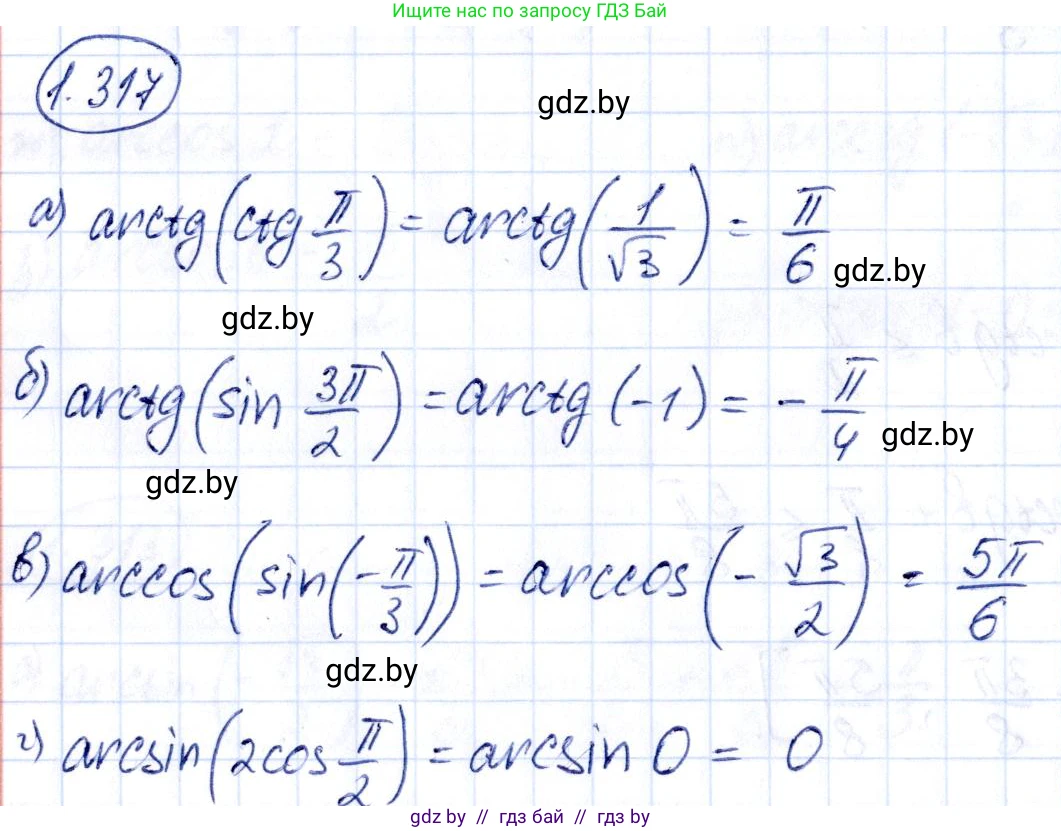 Ищите нас по запросу ГДЗ Бай
1.317
gdz.by
а) arctg(ctg π/3) = arctg(1/√3) = π/6
gdz.by
gdz.by
б) arctg(sin 3π/2) = arctg(-1) = - π/4
gdz.by
gdz.by
в) arccos(sin(-π/3)) = arccos(-√3/2) = 5π/6
gdz.by
г) arcsin(2cos π/2) = arcsin 0 = 0
gdz.by // гдз бай // гдз by